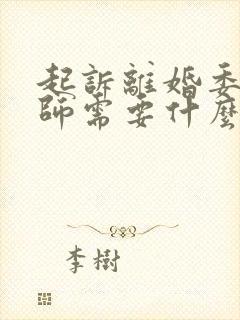 起訴離婚委
師需要什麼
李樹